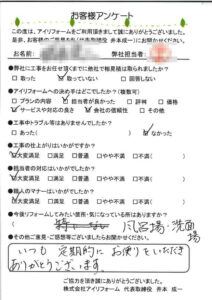 お客様アンケート
この度は、アイリフォームをご利用頂きまして誠にありがとうございました。
お名前: 弊社担当者:
●弊社に工事をお任せ頂くまでに他社で相見積は取られましたか?
□取った ☑取っていない □回答しない
●アイリフォームへの決め手はどこでしたか?(複数可)
□プランの内容 ☑担当者が良かった □評判 □価格
☑サービスや対応の良さ ☑会社の信頼性 □その他
●工事中トラブル等はありませんでしたか?
□あった ☑なかった
●工事の仕上がりはいかがですか?
☑大変満足 □満足 □普通 □やや不満 □不満( )
●担当者の対応はいかがでしたか?
☑大変満足 □満足 □普通 □やや不満 □不満( )
●職人のマナーはいかがでしたか?
☑大変満足 □満足 □普通 □やや不満 □不満( )
●今後リフォームしてみたい箇所・気になっている所はありますか?
風呂場・洗面場
●その他ご意見・ご感想等ございましたらお聞かせください。
いつも定期的にお便りをいただき
ありがとうございます。
ご協力を頂き誠にありがとうございました。
株式会社アイリフォーム 代表取締役 井本 成一